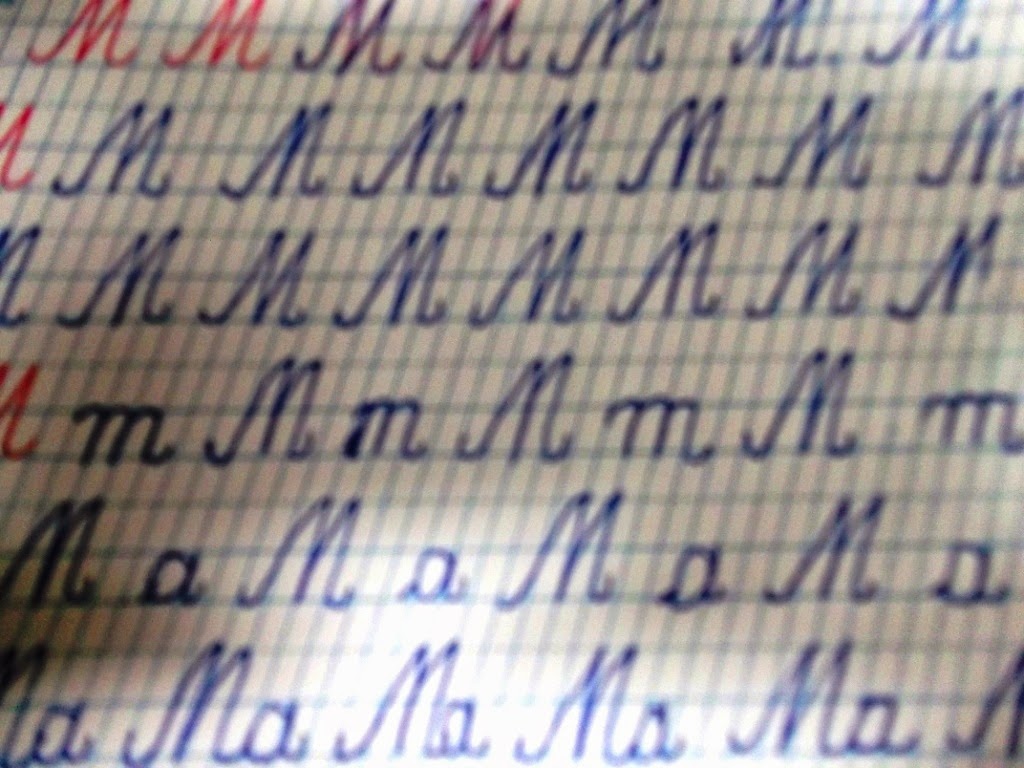 M M M M M M M
M M M M M M M M
M M M M M M M M
M m M m M m M m
M a M a M a M a
Ma Ma Ma Ma Ma M